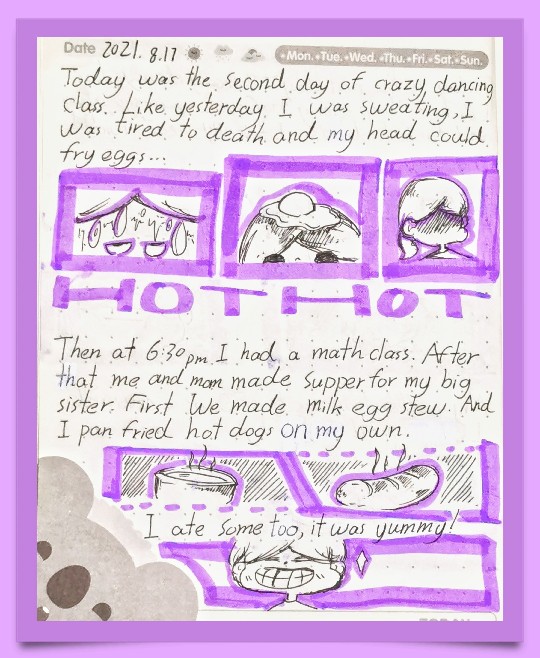 Date 2021. 8.17 •Mon.•Tue.•Wed.•Thu.•Fri.•Sat.•Sun.
Today was the second day of crazy dancing
class. Like yesterday I was sweating, I
was tired to death and my head could
fry eggs...
HOT HOT
Then at 6:30pm I had a math class. After
that me and mom made supper for my big
sister. First We made milk egg stew. And
I pan fried hot dogs on my own.
I ate some too, it was yummy!